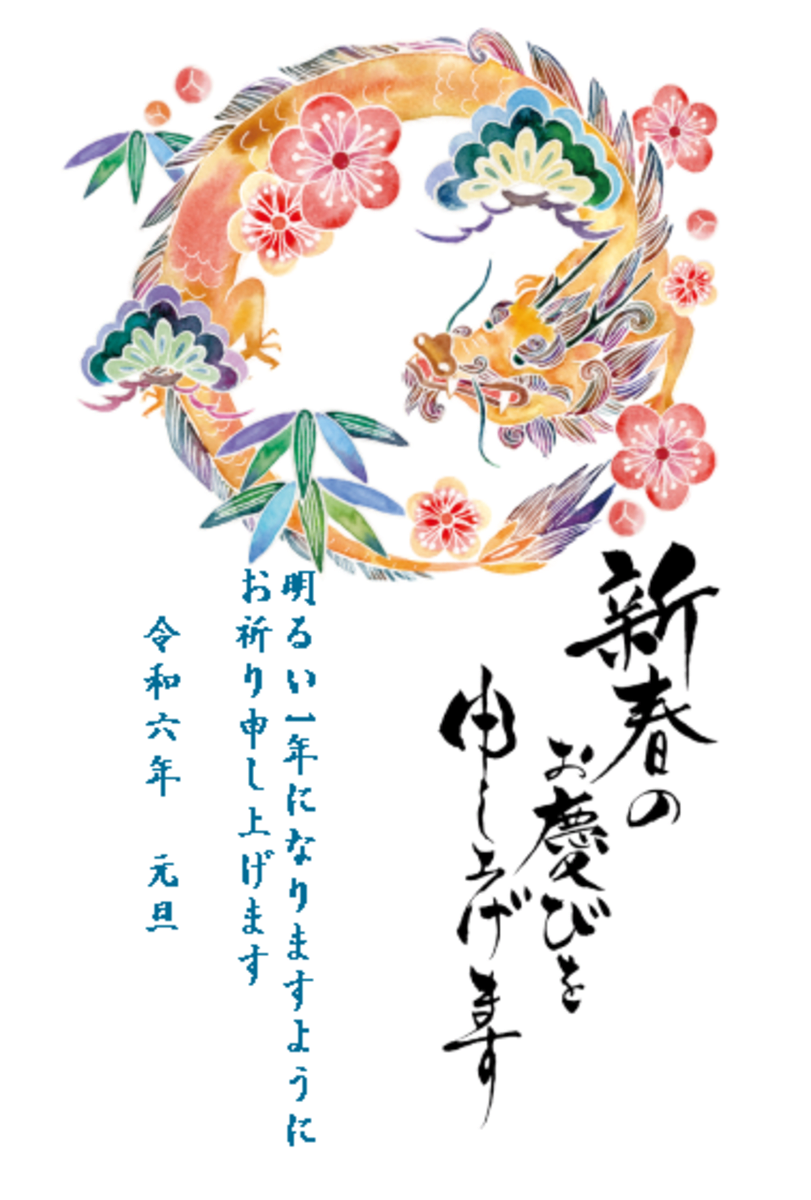 新春の
お慶びを
申し上げます
明るい一年になりますように
お祈り申し上げます
令和六年　元旦